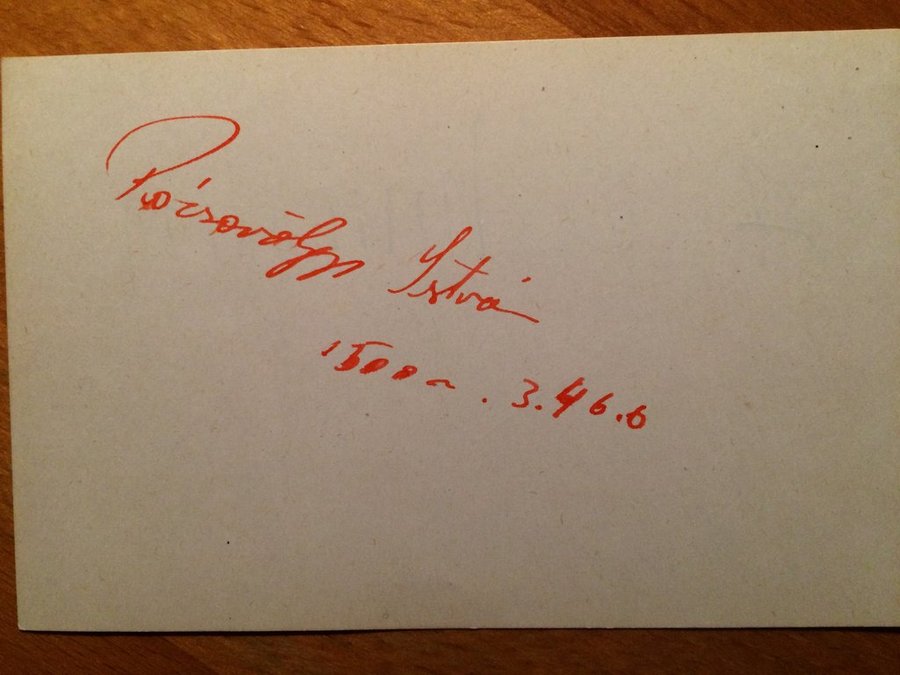 Rózsavölgyi István
1500 m. 3.40.6